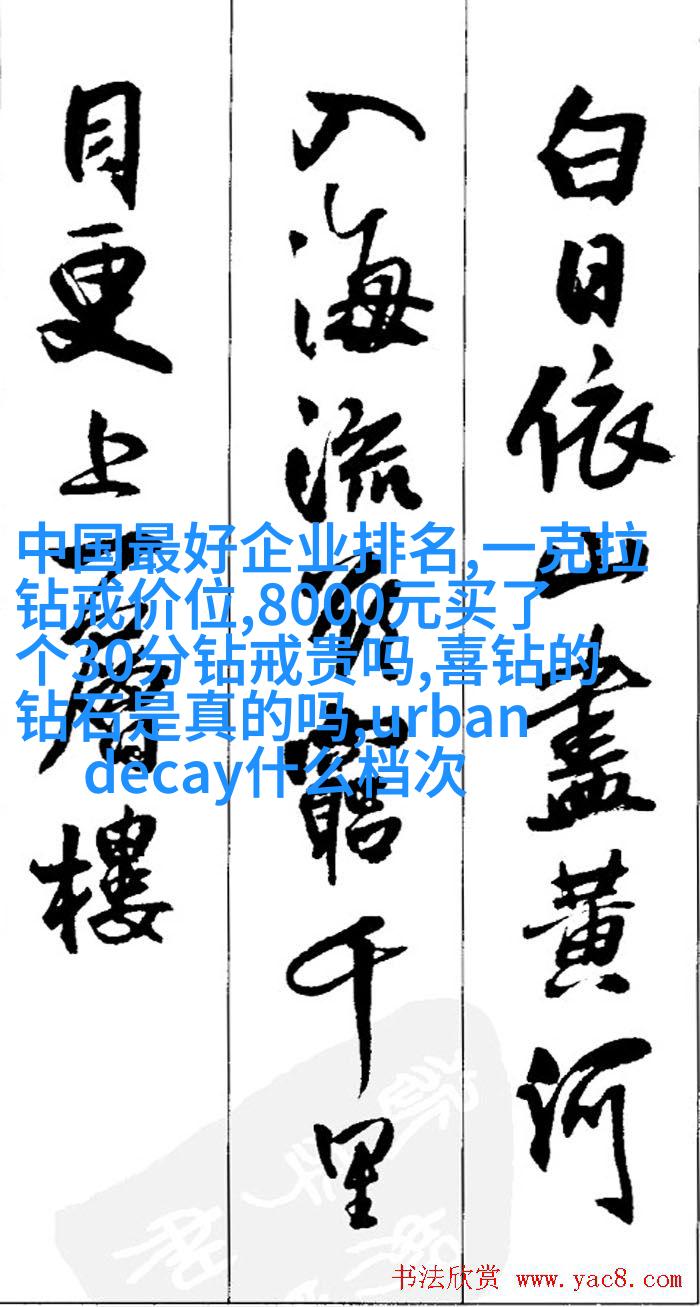 白日依山盡黄河
入海流欲窮千里
目更上一層樓
中国最好企业排名,一克拉
钻戒价位,8000元买了
个30分钻戒贵吗,喜钻的
钻石是真的吗,urban
decay什么档次
书法欣赏 www.yac8.com